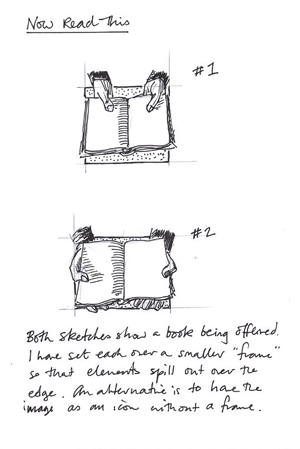 Now Read This
#1
#2
Both sketches show a book being offered.
I have set each over a smaller "frame"
so that elements spill out over the
edge. An alternative is to have the
image as an icon without a frame.